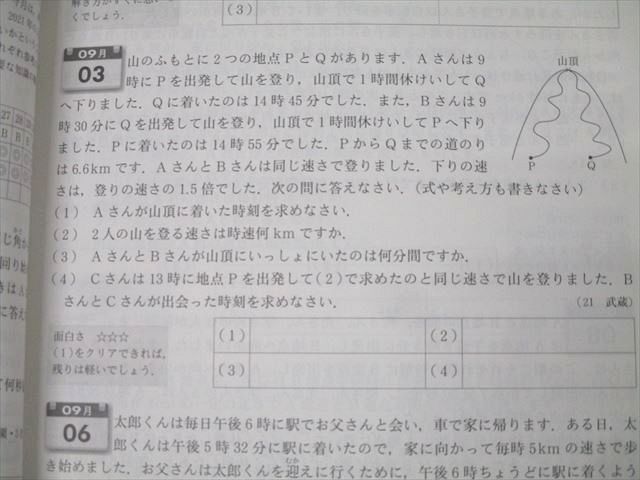 解き方がすぐに思い
くでしょう．
（3）
09月
03
山のふもとに2つの地点PとQがあります．Aさんは9
時にPを出発して山を登り，山頂で1時間休けいしてQ
へ下りました．Qに着いたのは14時45分でした．また，Bさんは9
時30分にQを出発して山を登り，山頂で1時間休けいしてPへ下り
ました．Pに着いたのは14時55分でした．PからQまでの道のり
は6.6kmです．AさんとBさんは同じ速さで登りました．下りの速
さは，登りの速さの1.5倍でした．次の問に答えなさい．（式や考え方も書きなさい）
（1） Aさんが山頂に着いた時刻を求めなさい．
（2） 2人の山を登る速さは時速何kmですか．
（3） AさんとBさんが山頂にいっしょにいたのは何分間ですか．
（4） Cさんは13時に地点Pを出発して(2)で求めたのと同じ速さで山を登りました．B
さんとCさんが出会った時刻を求めなさい．
（21 武蔵）
山頂
P
Q
面白さ ☆☆☆
(1)をクリアできれば，
残りは軽いでしょう．
（1）
（2）
（3）
（4）
09月
06
太郎くんは毎日午後6時に駅でお父さんと会い，車で家に帰ります．ある日，太
郎くんは午後5時32分に駅に着いたので，家に向かって毎時5kmの速さで歩
き始めました．お父さんは太郎くんを迎えに行くために，午後6時ちょうどに駅に着くよう
むか